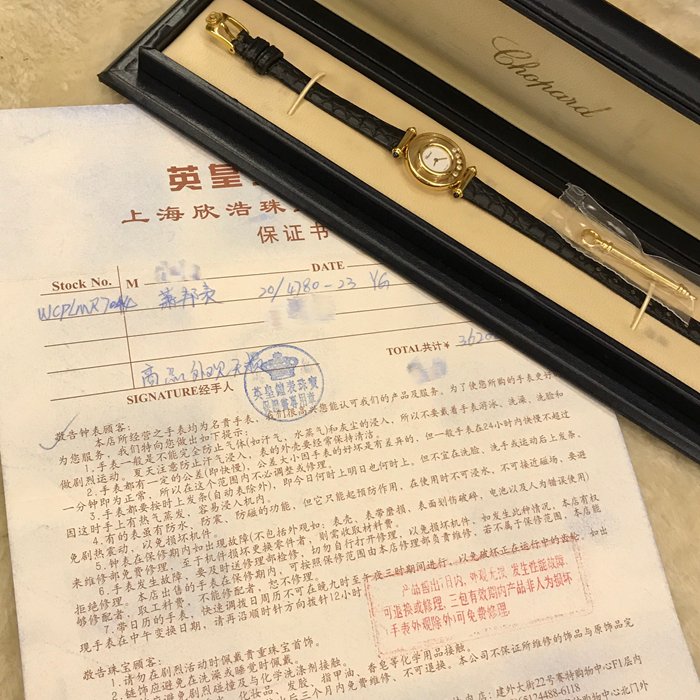 Chopard
英皇
上海欣浩珠
保证书
Stock No. M DATE
萧邦表 20/4780-23 YG
TOTAL共计¥
商品外观无损
SIGNATURE经手人
英皇鐘表珠寶
敬告钟表顾客:
本店所经营之手表均为名贵手表,我们很高兴您能认可我们的产品及服务。为了使您所购的手表更好
为您服务,我们特向您做出如下提示:
1.手表一般是不能完全防止气体(如汗气,水蒸气)和灰尘的浸入,所以不要戴着手表游泳、洗澡、洗脸和
做剧烈运动。夏天注意防止汗气浸入,表的外壳要经常保持清洁。
2.手表都有一定的公差(即快慢),公差大小因手表的好坏是有差异的,但一般手表在24小时内快慢不超过
一分钟即为正常,所以在这个范围内不必调整或修理。
3.手表都要按时上发条(自动表除外),即今日何时上明日也何时上。但不宜在洗脸、洗手或运动后上发条,
因这时手上有热气蒸发,容易浸入机内。
4.有的表虽有防水、防震、防磁的功能,但它只能起预防作用,在使用时不可浸水,不可接近磁场,要避
免剧热震动,以免损坏机件。
5.钟表在保修期内如出现故障(不包括外观如:表壳、表带磨损,表面划伤破碎,电池以及人为错误使用)
来维修部免费修理,至于机件损坏更换零件者,则需收取材料费。
6.手表发生故障,要及时送修理部检修,切勿自行打开修理,以免损坏机件。如发生此种情况,本店有权
拒绝修理。本店出售的手表在保修期内,可按照保修范围由本店修理部负责维修,若不属于保修范围,本店能
够修配者,取工料费,不能修配者,恕不修理。
7.带日历的手表,快速调拨日周历不可在晚九时至午夜三时期间进行,以免破坏正在运行中的齿轮,如出
现手表在中午变换日期,请再沿顺时针方向拨针12小时
产品售出7日内,外观无损,发生性能故障,
可退换或修理,三包有效期内产品非人为损坏
(手表外观除外)可免费修理。
敬告珠宝顾客:
1.请勿在剧烈活动时佩戴贵重珠宝首饰。
2.链饰应避免在洗澡或睡觉时佩戴。
化妆品、发胶、指甲油、香皂等化学用品接触。
后三个月内免费维修,不可退换。本公司不保证所维修的饰品与原饰品完
店:建外大街22号赛特购物中心F1层内